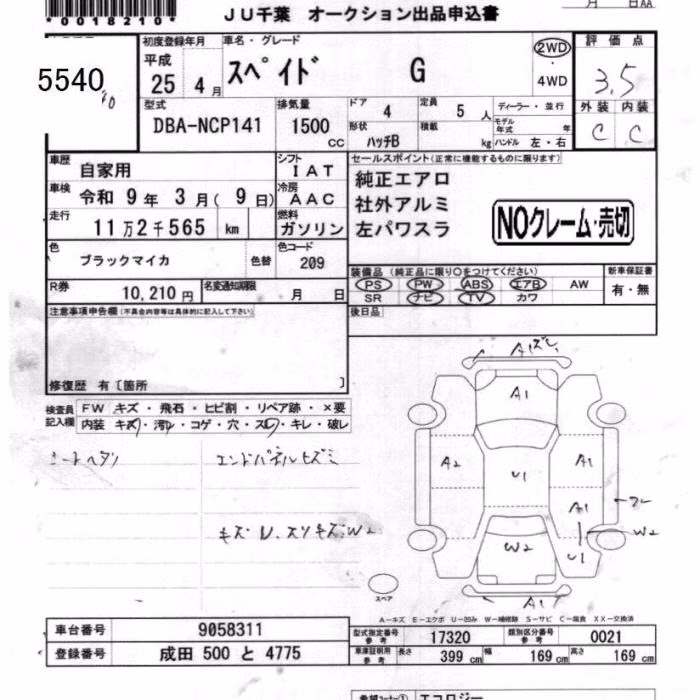 *00018210*
ＪＵ千葉 オークション出品申込書
月 日AA
5540
初度登録年月
平成
25 4 月
車名・グレード
スペイド G
2WD
4WD
評価点
3.5
外装 内装
C C
型式
DBA-NCP141
排気量
1500 cc
ドア 4
定員 5 人
形状 ハッチB
積載 kg
ディーラー・並行
モデル年式 年
ハンドル 左・右
車歴 自家用
シフト IAT
車検 令和 9 年 3 月( 9 日)
冷房 AAC
走行 11 万 2 千 565 km
燃料 ガソリン
色 ブラックマイカ 色替
色コード 209
セールスポイント(正常に機能するものに限ります)
純正エアロ
社外アルミ
左パワスラ
NOクレーム・売切
R券 10,210 円
名変通知期限 月 日
装備品 (純正品に限り○をつけてください)
PS PW ABS エアB AW
SR ナビ TV カワ
新車保証書
有・無
注意事項申告欄(不具合内容等は具体的に記入して下さい)
後日品
修復歴 有〔箇所 〕
検査員記入欄
FW キズ・飛石・ヒビ割・リペア跡・×要
内装 キズ・汚レ・コゲ・穴・スレ・キレ・破レ
シートヘタリ
エンドパネルヒズミ
キズ U. スリキズ. W2
A1ズレ
A1
A2
U1
A1
A1
W2
W2
U1
A1
スペア
A－キズ E－エクボ U－凹み W－補修跡 S－サビ C－腐食 XX－交換済
車台番号 9058311
登録番号 成田 500 と 4775
型式指定番号 参考 17320
類別区分番号 参考 0021
車庫証明用 参考 長さ 399 cm 幅 169 cm 高さ 169 cm
希望コーナー① エコロジー